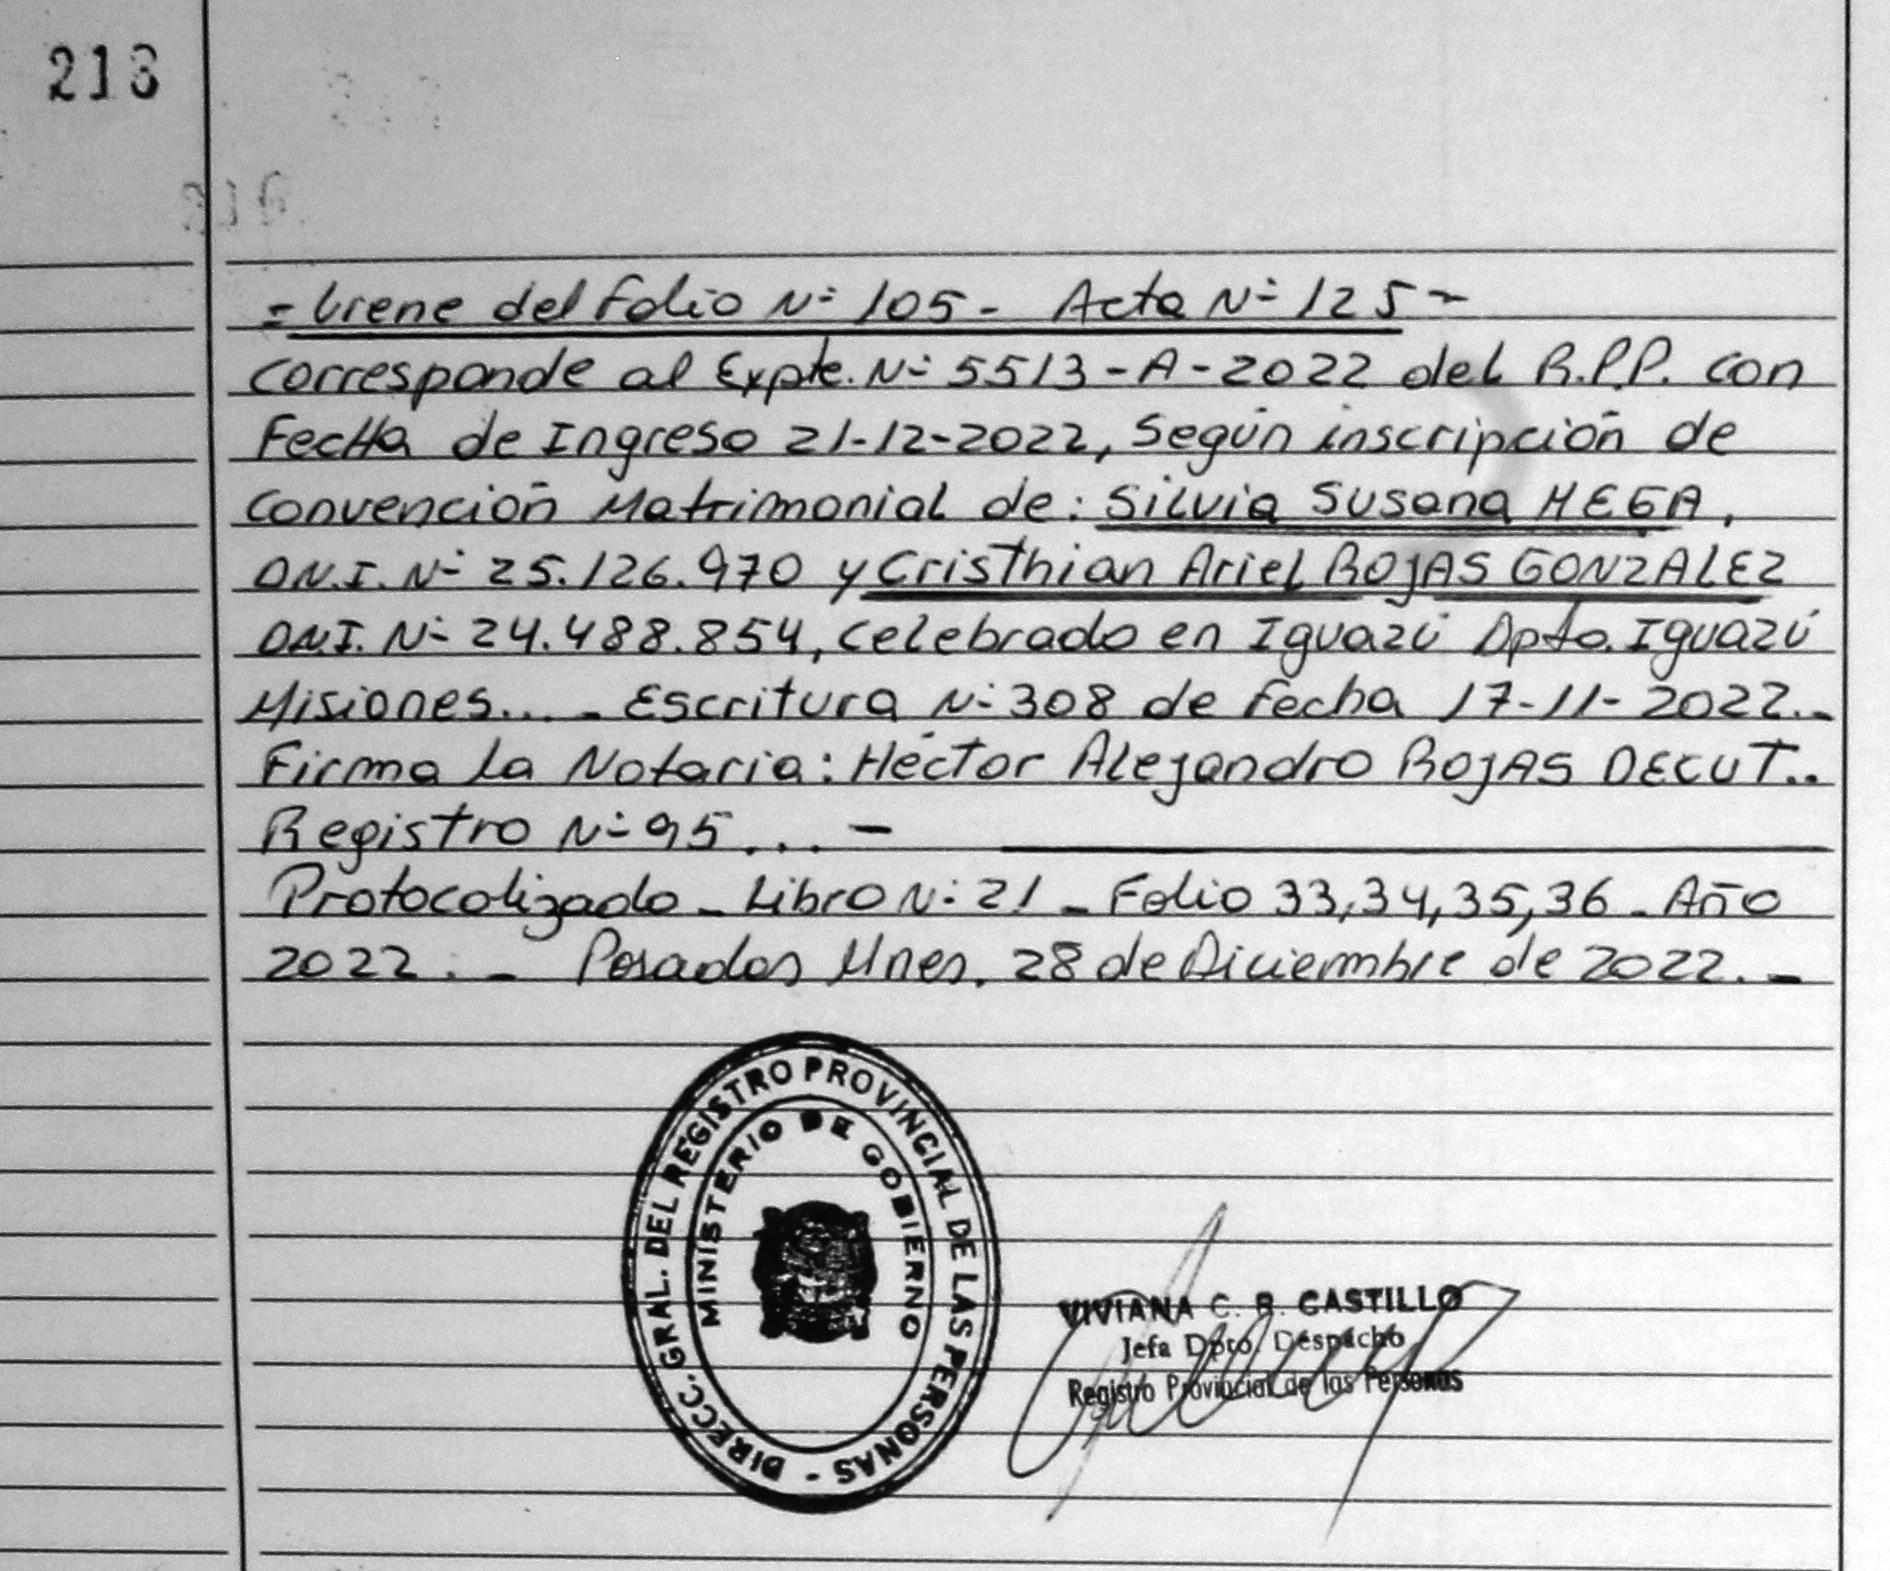 213
- Viene del Folio Nº 105 - Acta Nº 125 -
corresponde al Expte. Nº 5513-A-2022 del R.P.P. con
FecHa de Ingreso 21-12-2022, Según inscripción de
convención Matrimonial de: Silvia Susana MEGA,
D.N.I. Nº 25.126.970 y Cristhian Ariel ROJAS GONZALEZ
D.N.I. Nº 24.488.854, celebrado en Iguazú Dpto. Iguazú
Misiones... - Escritura Nº 308 de Fecha 17-11-2022.-
Firma la Notaria: Héctor Alejandro ROJAS DECUT..
Registro Nº 95 ... -
Protocolizado - Libro Nº 21 - Folio 33,34,35,36 - Año
2022. - Posadas Mnes, 28 de Diciembre de 2022. -
DIRECC. GRAL. DEL REGISTRO PROVINCIAL DE LAS PERSONAS -
MINISTERIO DE GOBIERNO
VIVIANA C. R. CASTILLO
Jefa Dpto. Despacho
Registro Provincial de las Personas